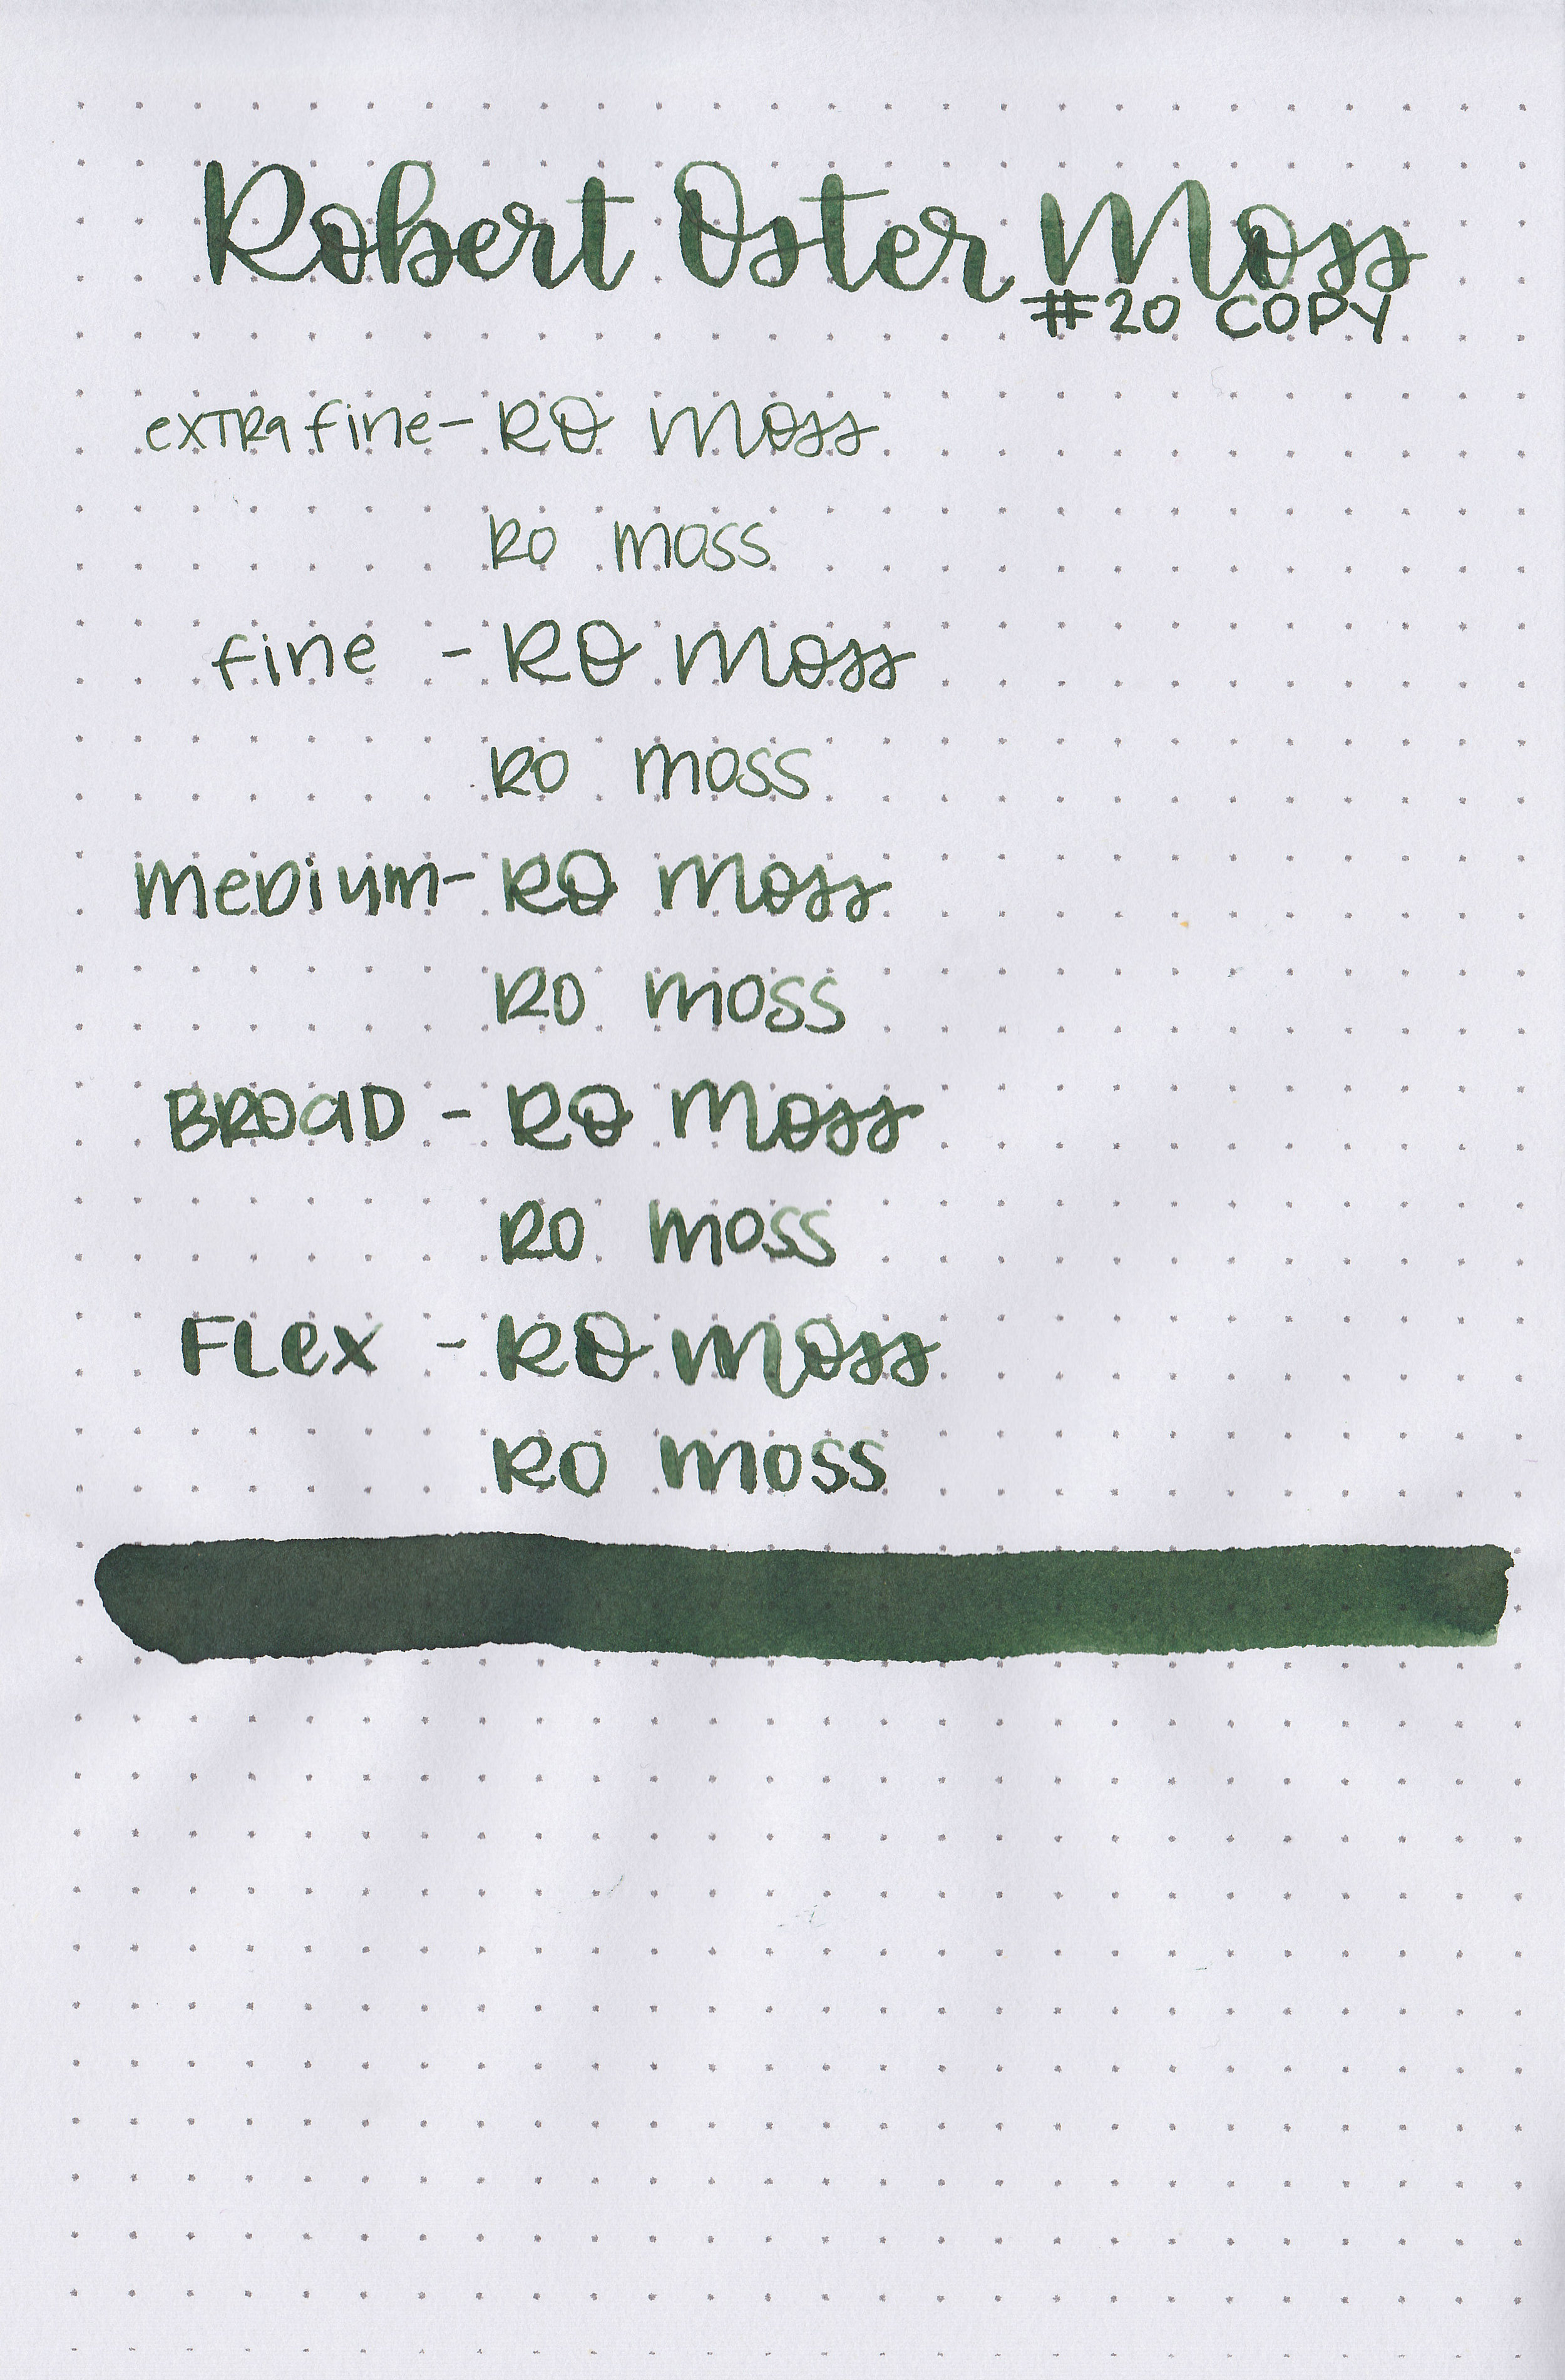 Robert Oster Moss
#20 COPY
extra fine - RO Moss
RO moss
fine - RO Moss
RO moss
medium - RO Moss
RO moss
BROAD - RO Moss
RO moss
FLex - RO Moss
RO moss